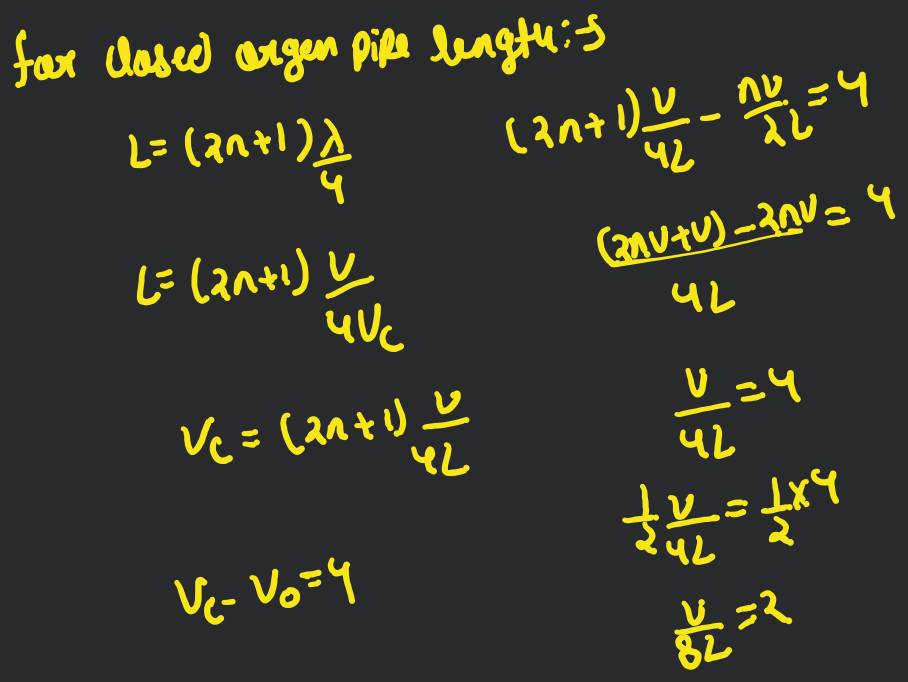 for closed orgen pipe length:→
L = (2n+1) λ/4
L = (2n+1) v/4νc
νc = (2n+1) v/4L
νc - νo = 4
(2n+1) v/4L - nv/2L = 4
(2nv+v) - 2nv/4L = 4
v/4L = 4
1/2 v/4L = 1/2 × 4
v/8L = 2